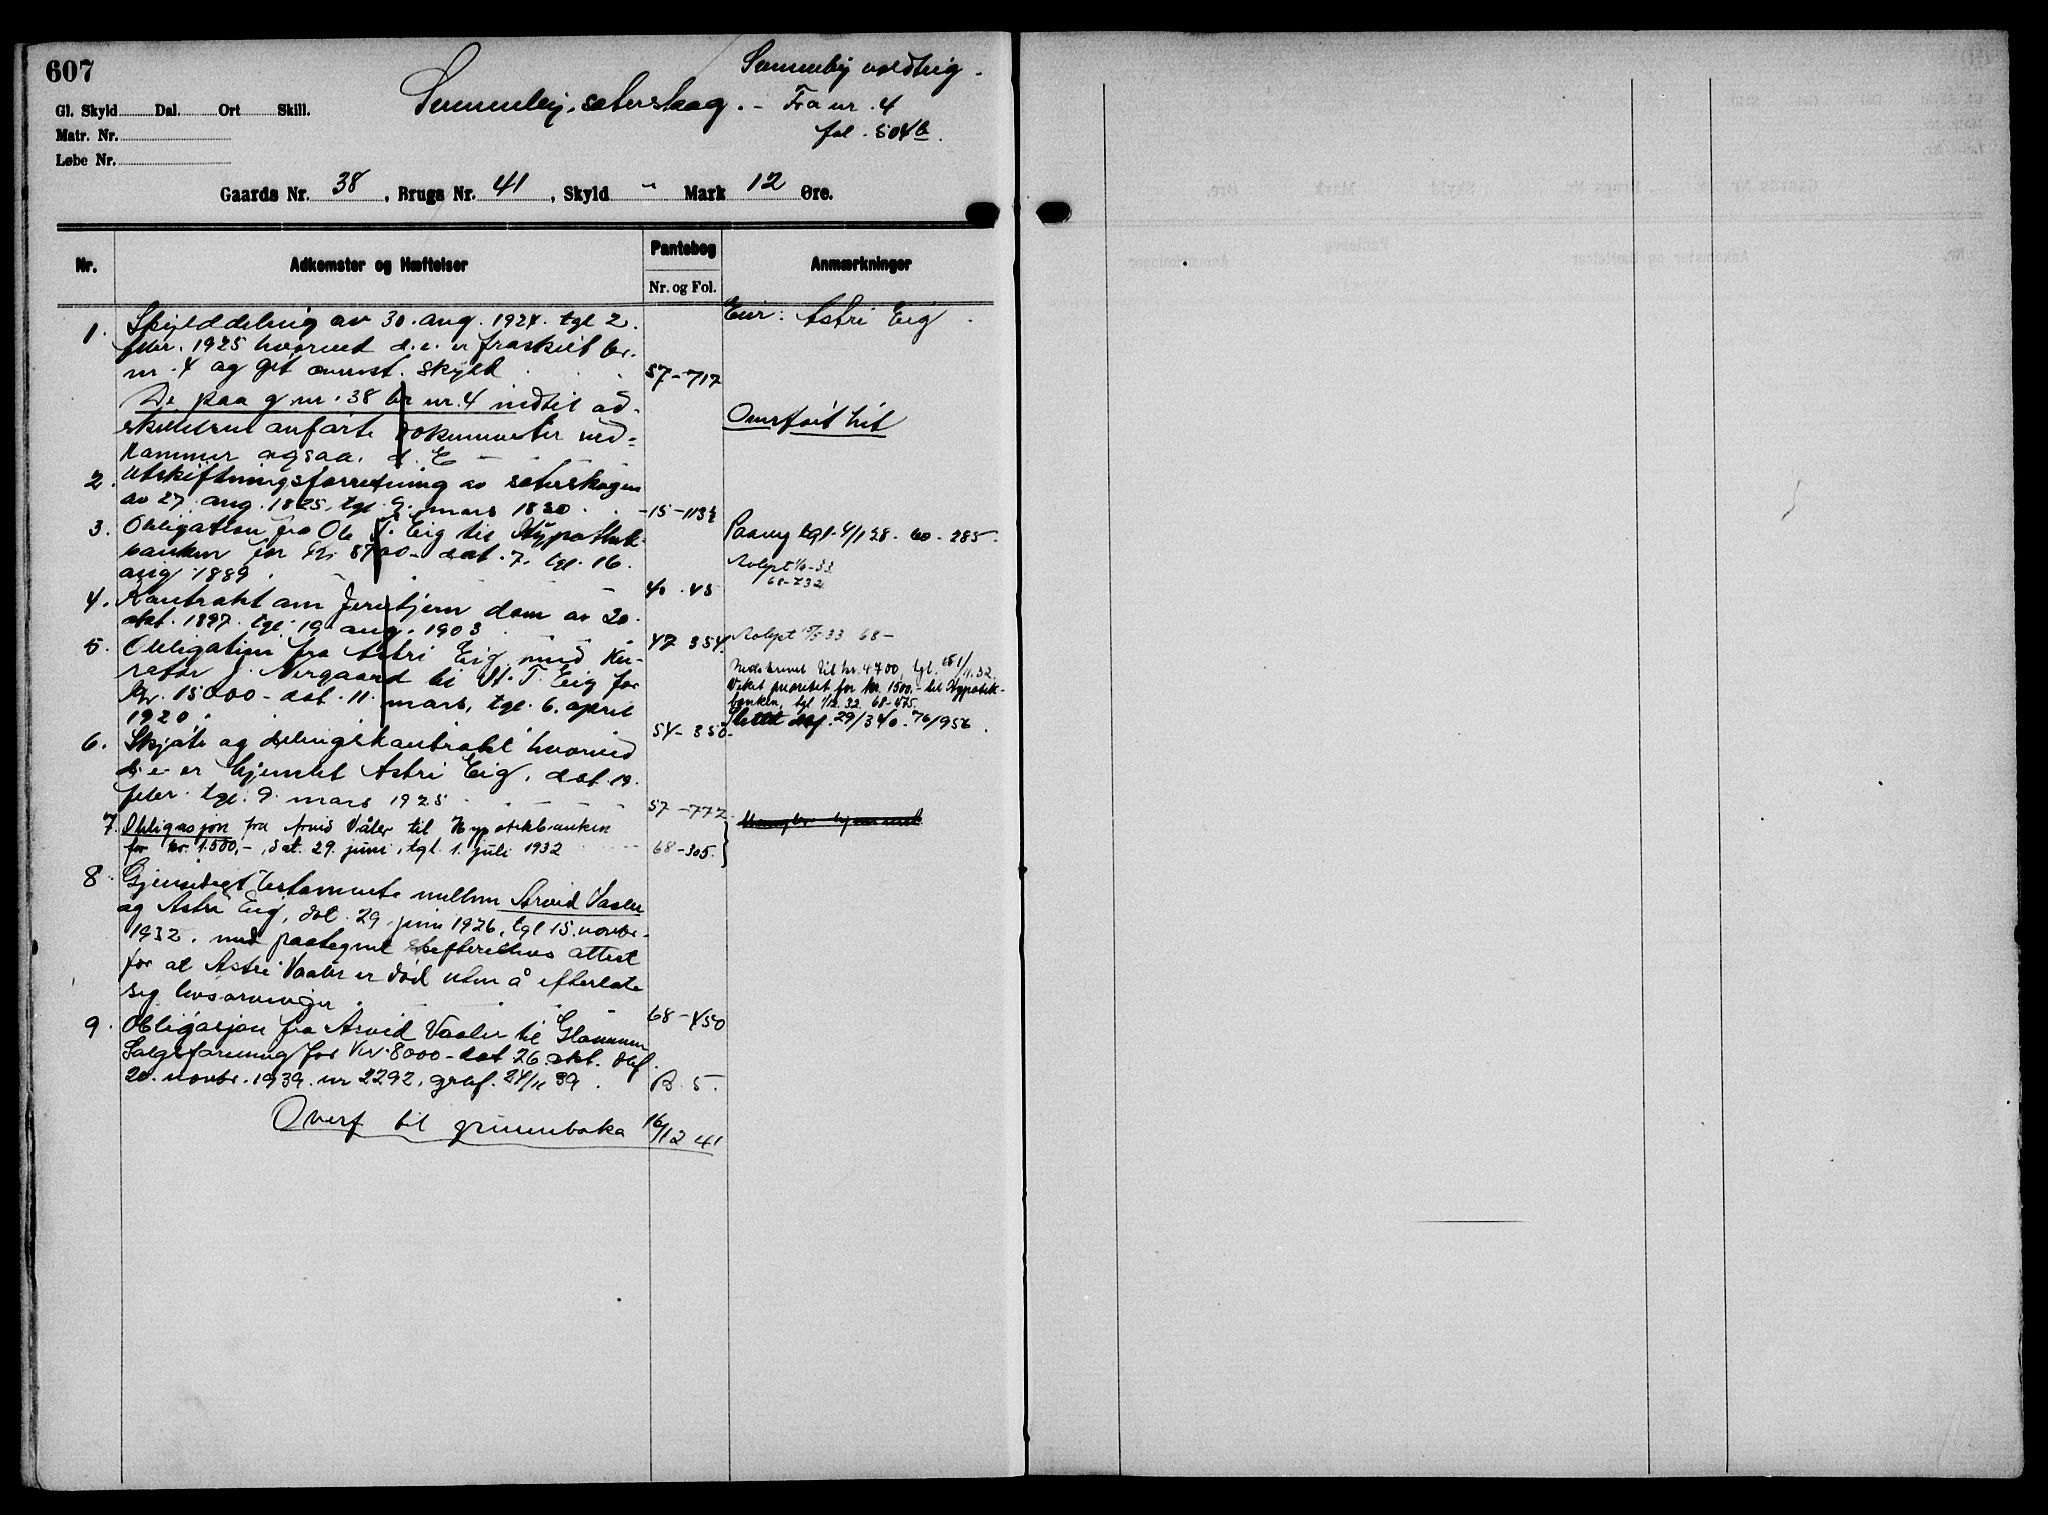 607
Gl. Skyld Dal. Ort Skill.
Matr. Nr.
Løbe Nr.
Sæterskog. - Fra nr. 4
fol. 504b.
Gaards Nr. 38, Brugs Nr. 41, Skyld " Mark 12 Øre.
Nr.
Adkomster og Hæftelser
Pantebog
Nr. og Fol.
Anmærkninger
Eier: Astri Eig.
1. Skylddeling av 30. aug. 1924. tgl 2.
febr. 1925 hvorved d. e. er fraskilt br.
nr. 4 og git ovennt. skyld 57-717
De paa g nr. 38 br nr. 4 indtil ad-
skillelsen anførte dokumenter ved=
kommer ogsaa d. E Overført hit
2. Utskiftningsforretning av sæterskogen
av 27. aug. 1825, tgl 9. mars 1830 15-113½
3. Obligation fra Ole T. Eig til Hypothek-
banken for Kr 8700 - dat. 7. tgl. 16.
aug 1889. 40 - 45
tgl. 4/1 28. 60-285.
68-732
4. Kontrakt om dam av 20.
okt. 1897. tgl. 19. aug. 1903 47 354.
5. Obligation fra Astri Eig med Ku-
rator J. Nergaard til St. T. Eig for
Kr. 15000 - dat. 11. mars, tgl. 6. april
1920. 54-350-
Nedskrevet til kr. 4700, tgl.
Veket prioritet for kr. 1500.- til Hypotek-
banken, tgl 1/12. 32 68-475.
Slettet dagf. 29/3 40. 76/956.
6. Skjøte og delingskontrakt hvorved
d. e. er hjemlet Astri Eig, dat. 19.
febr. tgl. 9. mars 1925 57-772
7. Obligasjon fra Arvid Våler til Hypotekbanken
for kr. 1.500,-, dat. 29. juni, tgl. 1. juli 1932 68-305.
8 Gjensidigt testamente mellem Arvid Vaaler
og Astri Eig, dat. 29. juni 1926, tgl 15. novbr.
1932. med paategnet skifterettens attest
for at Astri Vaaler er død uten å efterlate
sig livsarvinger. 68-450
9. Obligasjon fra Arvid Vaaler til Glommen
Salgsforening for Kr. 8000 - dat 26. okt. dagf.
20. novbr. 1939. nr 2292, graf. 24/11 39. B. 5.
Overf til grunnboka 16/12 41